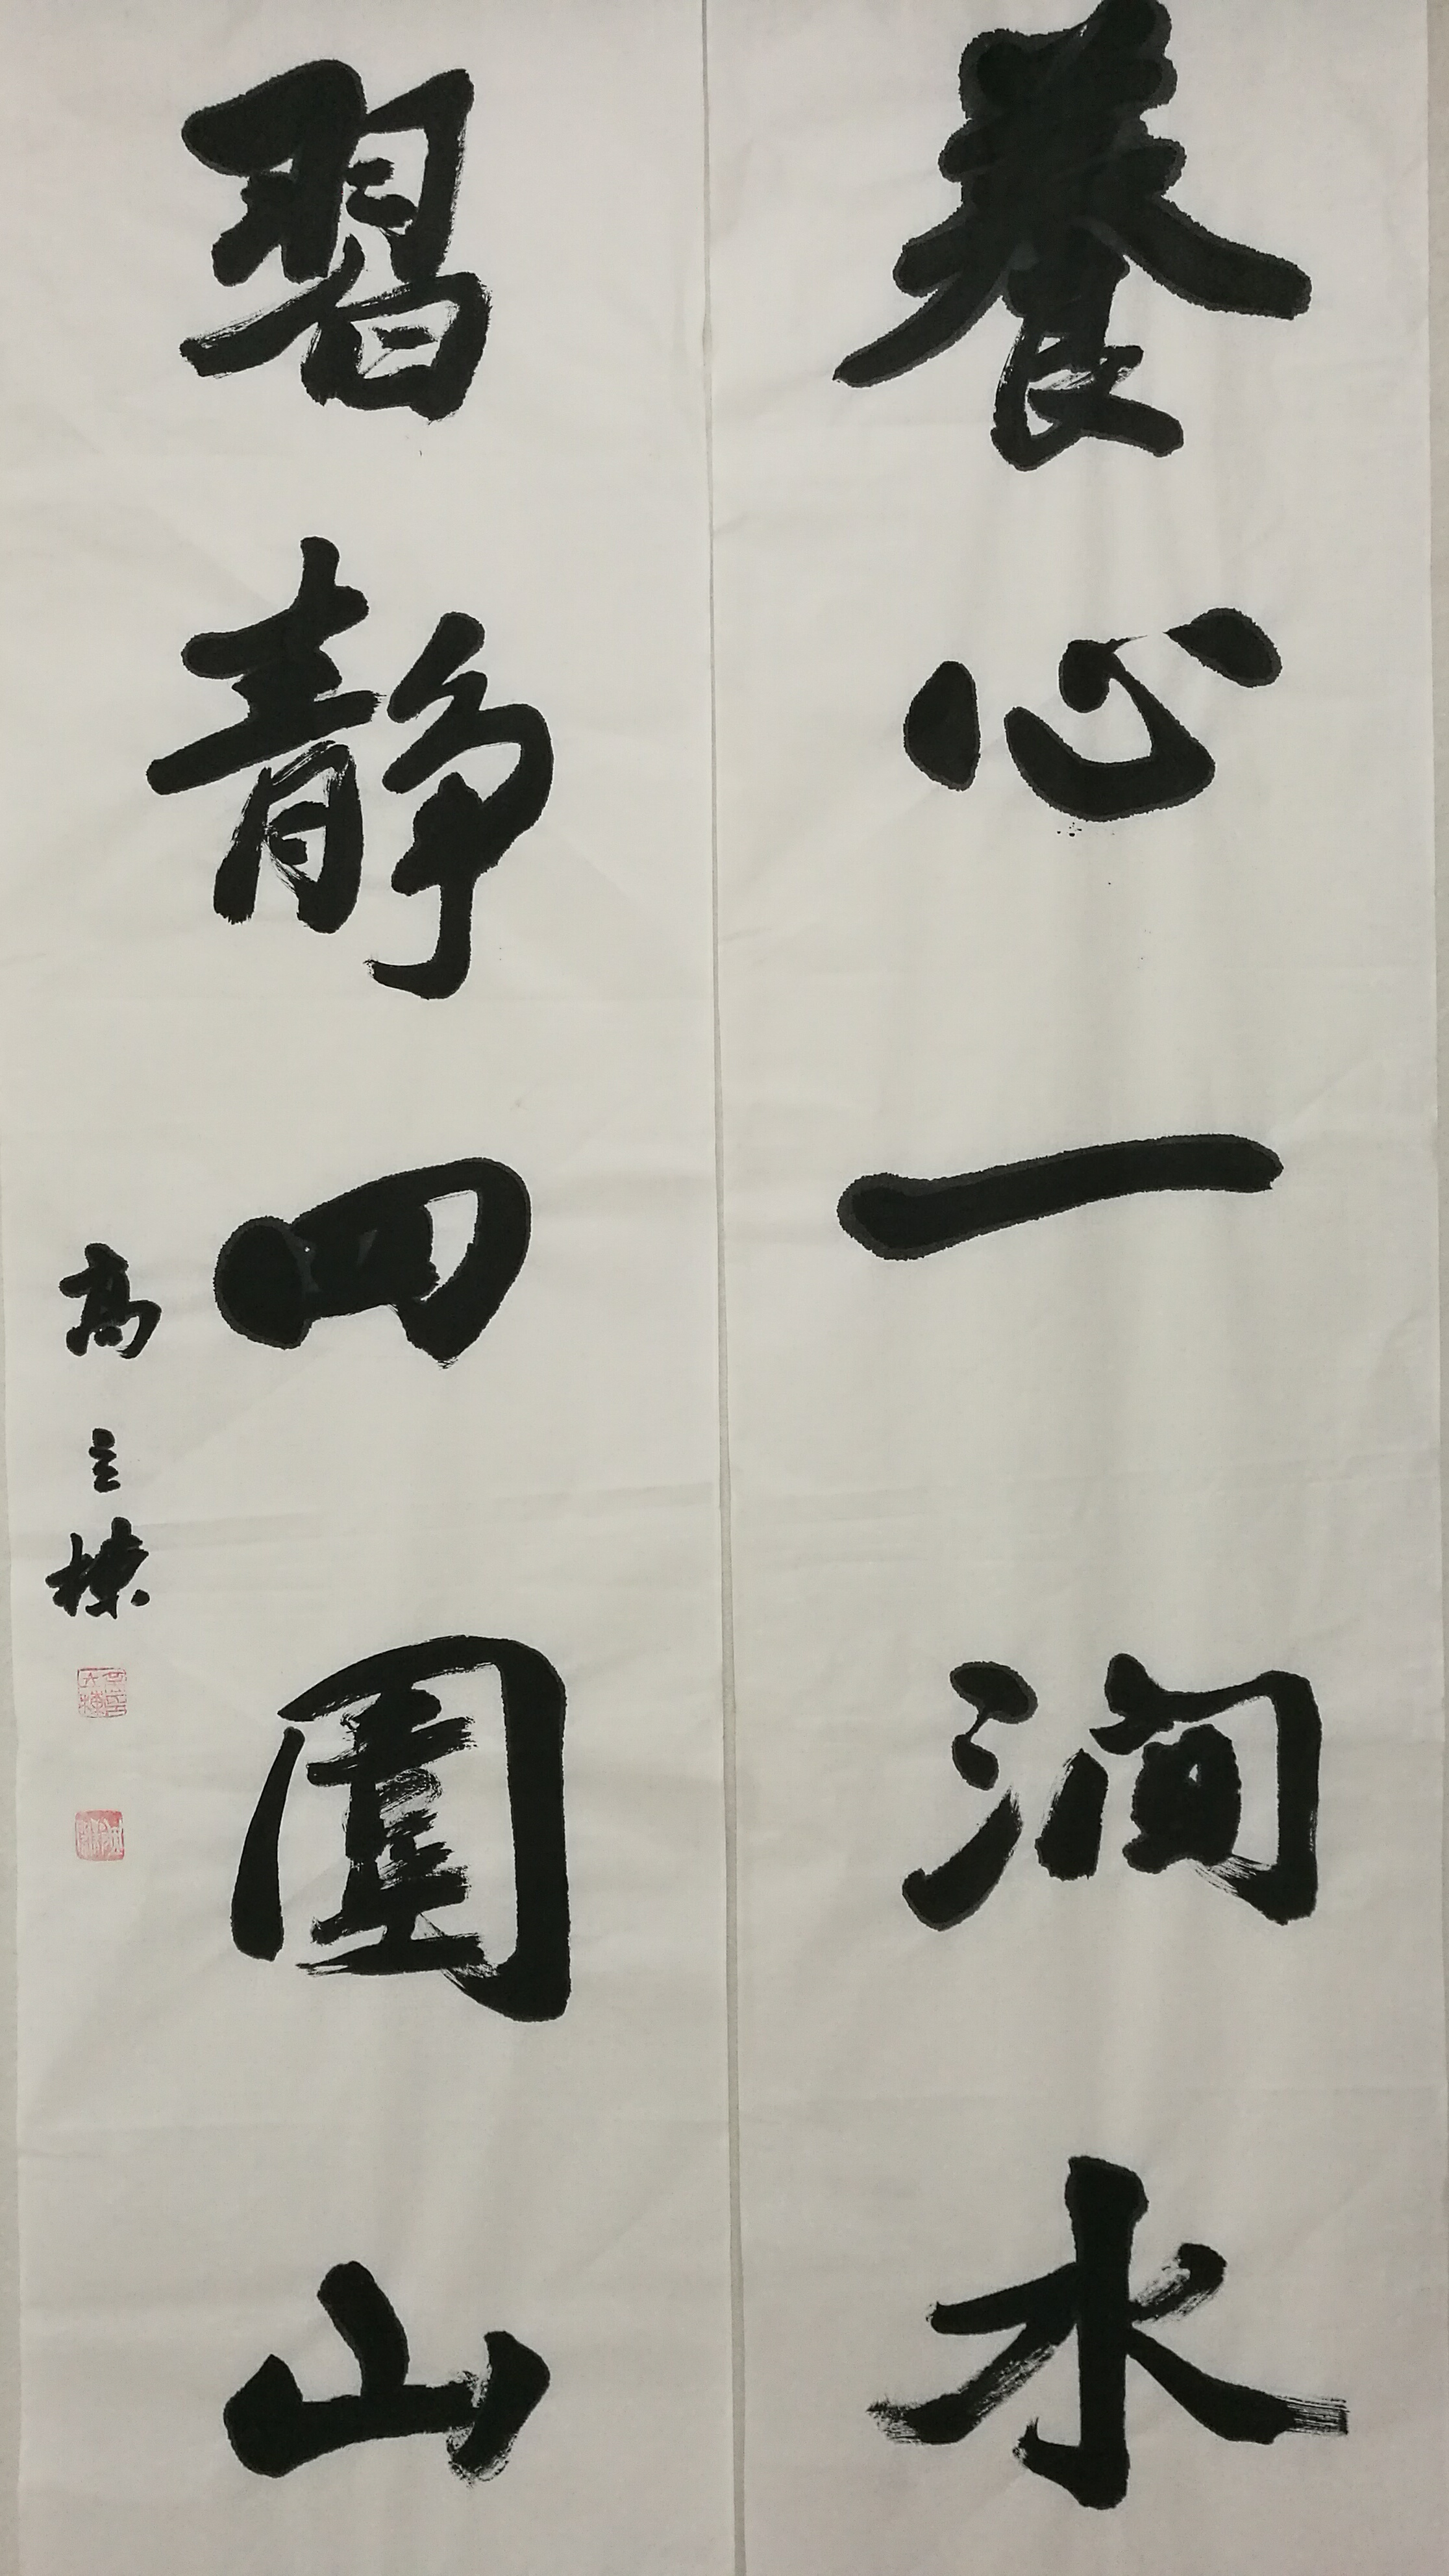 養心一澗水
習靜四圍山
高立棟